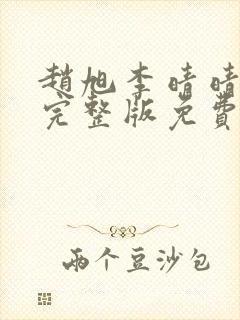 趙旭李晴晴
完整版免費
兩个豆沙包